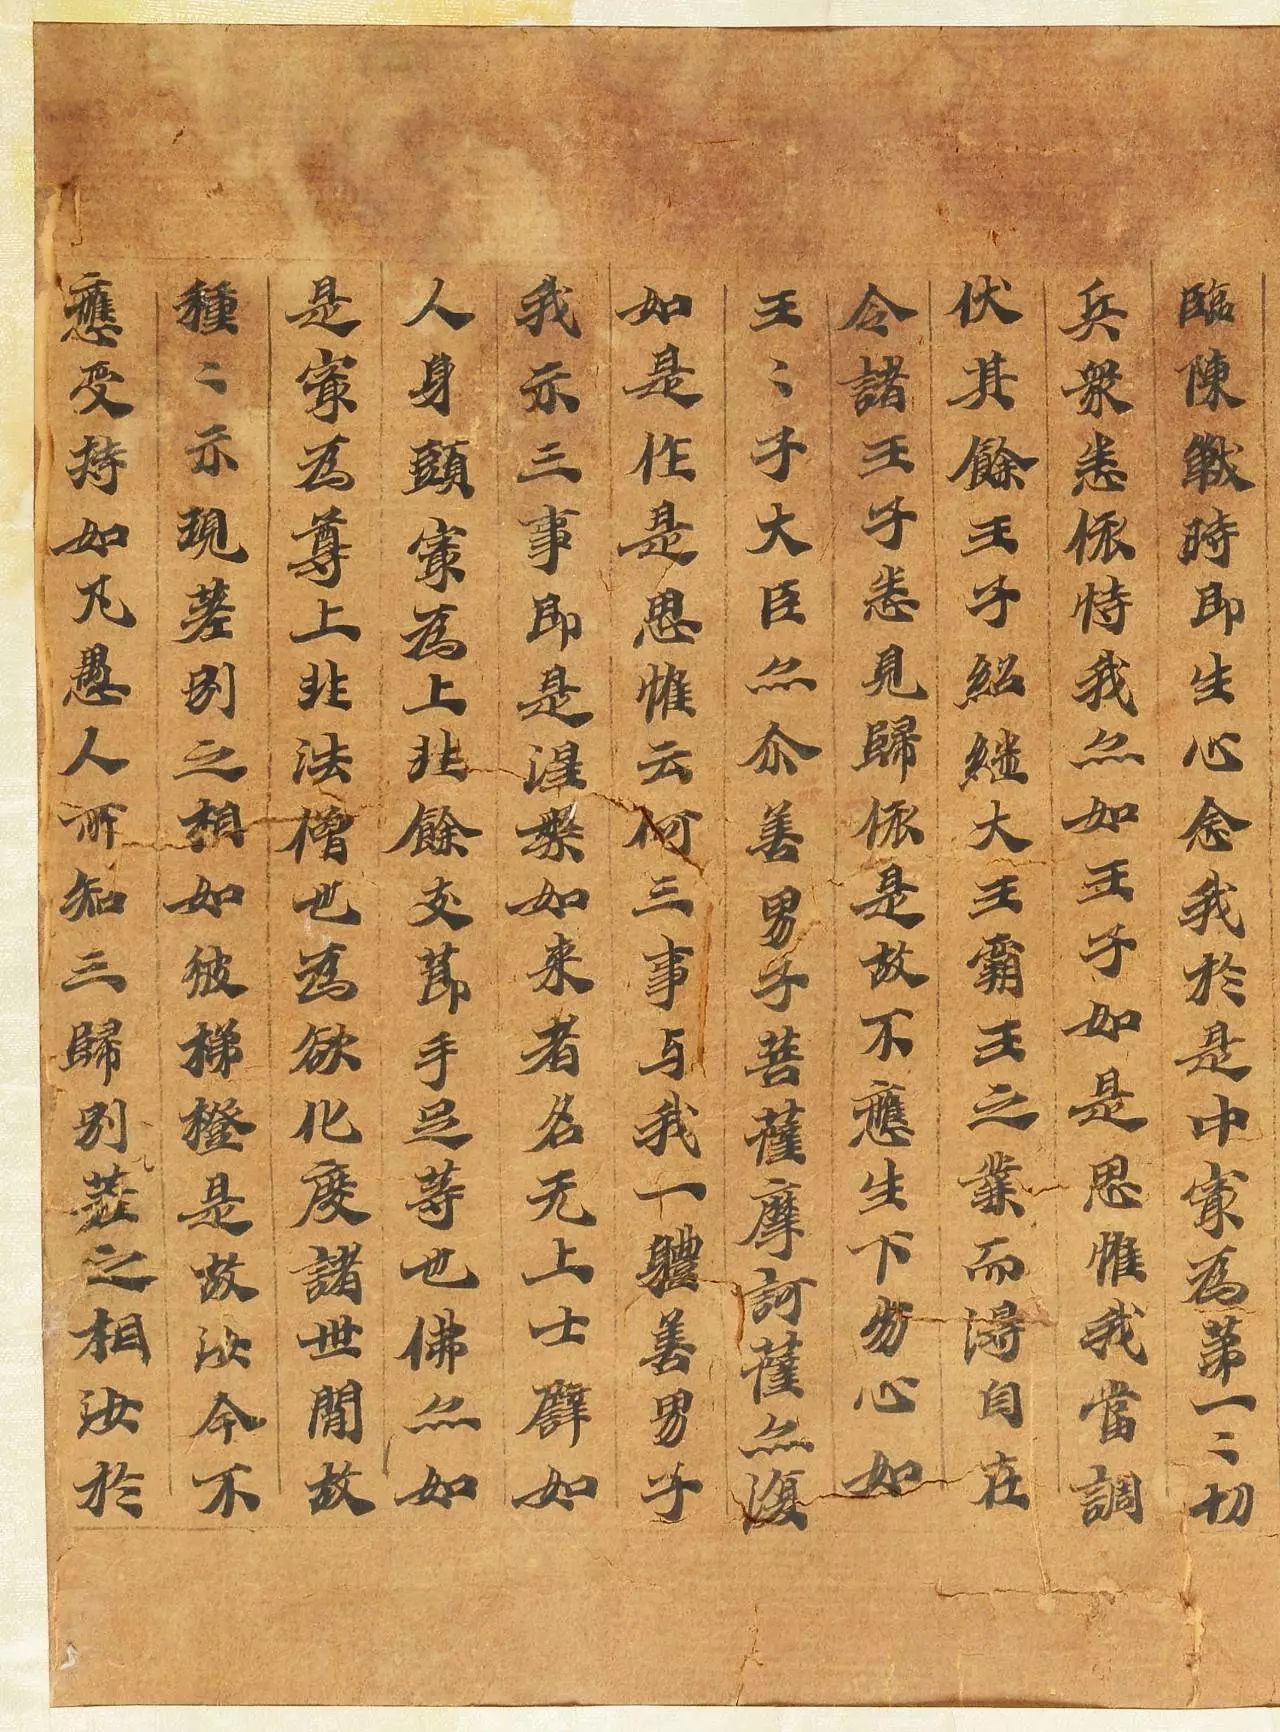 臨陳戰時即生心念我於是中㝡為第一〻切
兵衆悉依恃我亦如王子如是思惟我當調
伏其餘王子紹繼大王霸王之業而得自在
令諸王子悉見歸依是故不應生下劣心如
王〻子大臣亦尒善男子菩薩摩訶薩亦復
如是作是思惟云何三事与我一體善男子
我示三事即是涅槃如来者名无上士譬如
人身頭㝡為上非餘支節手足等也佛亦如
是㝡為尊上非法僧也為欲化度諸世閒故
種〻示現差別之相如彼梯橙是故汝今不
應受持如凡愚人所知三歸別差之相汝於